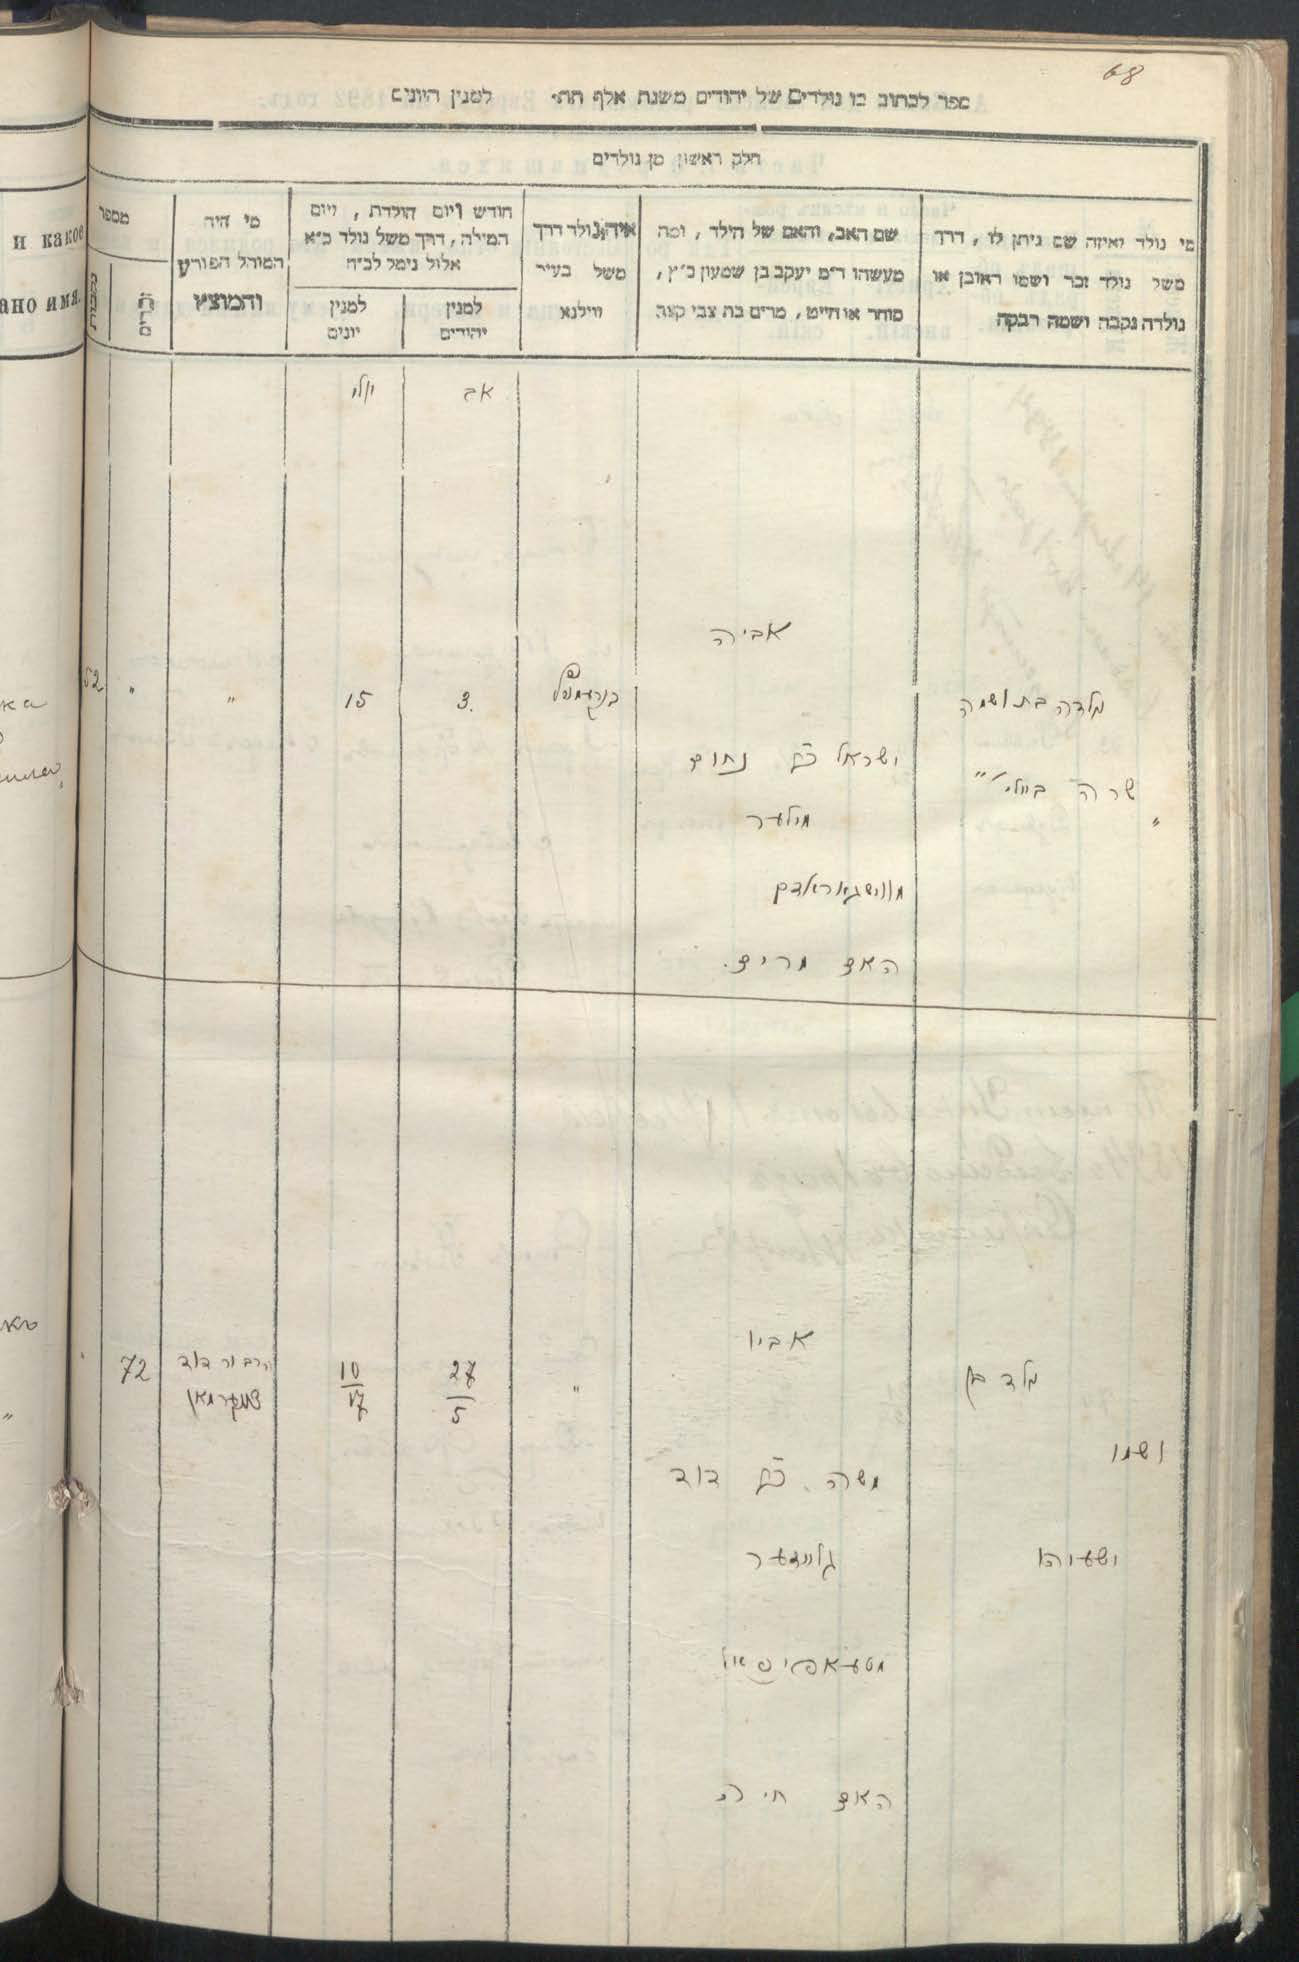 68
ספר לכתוב בו נולדים של יהודים משנת אלף תת׳ למנין היונים
חלק ראשון מן נולדים
מי נולד ואיזה שם ניתן לו, דרך
משל נולד זכר ושמו ראובן או
נולדה נקבה ושמה רבקה
שם האב, והאם של הילד, ומה
מעשהו ר״מ יעקב בן שמעון כ״ץ,
סוחר או חייט, מרים בת צבי קצב
איה נולד דרך
משל בעיר
ווילנא
חודש ויום הולדת, ויום
המילה, דרך משל נולד כ״א
אלול נימל לכ״ח
למנין
יהודים
למנין
יונים
מי היה
המוהל הפורע
והמוצץ
מספר
זכרים
נקבות
и какое
ано имя.
אב
יולי
אביה
נולדה בת ושמה
3.
15
"
"
52
ישראל בן נחום
שרה ביילי
מילער
האם מרים.
אביו
נולד בן
"
27
5
10
17
הרב ור דוד
72
ושמו
משה בן דוד
ישעיהו
האם חיה